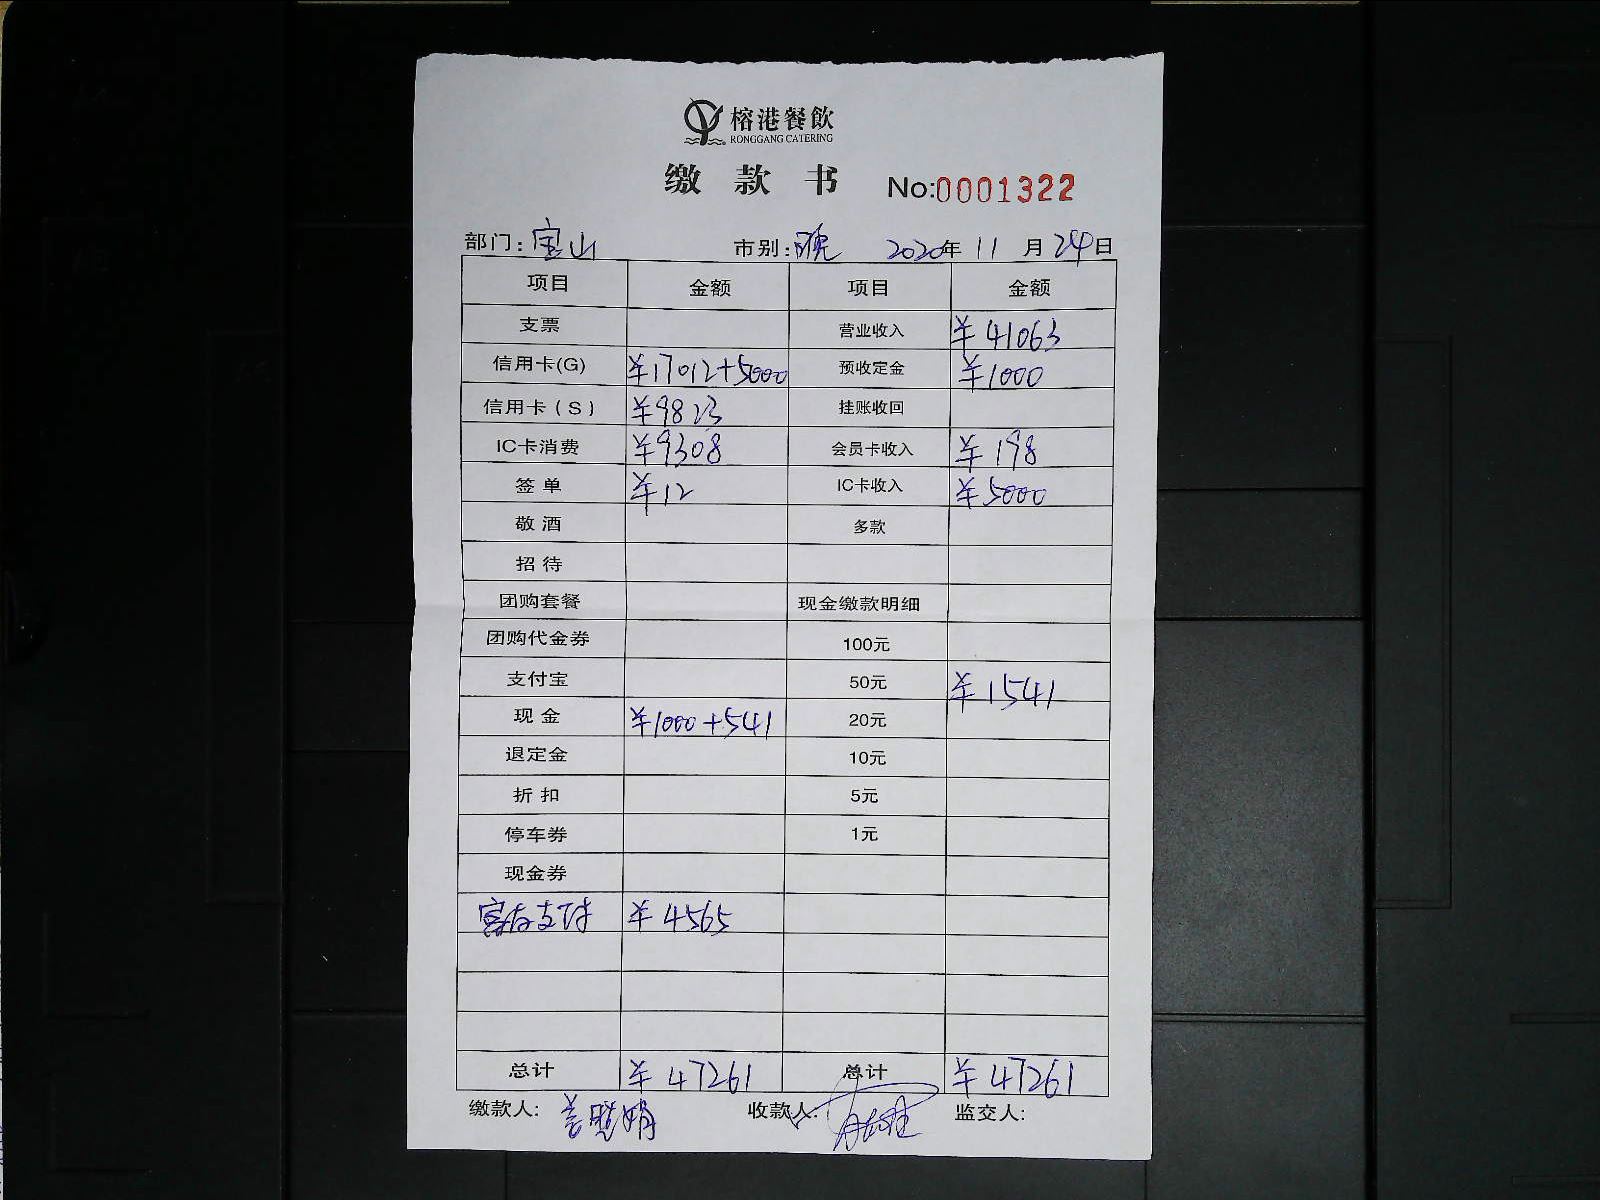 榕港餐飲
RONGGANG CATERING
缴款书 No:0001322
部门:宝山 市别: 2020年11月24日
项目 金额 项目 金额
支票 营业收入 ¥41063
信用卡(G) ¥17012+5000 预收定金 ¥1000
信用卡(S) ¥9823 挂账收回
IC卡消费 ¥9308 会员卡收入 ¥198
签单 ¥12 IC卡收入 ¥5000
敬酒 多款
招待
团购套餐 现金缴款明细
团购代金券 100元
支付宝 50元 ¥1541
现金 ¥1000+541 20元
退定金 10元
折扣 5元
停车券 1元
现金券
支付 ¥4565
总计 ¥47261 总计 ¥47261
缴款人: 收款人: 监交人: